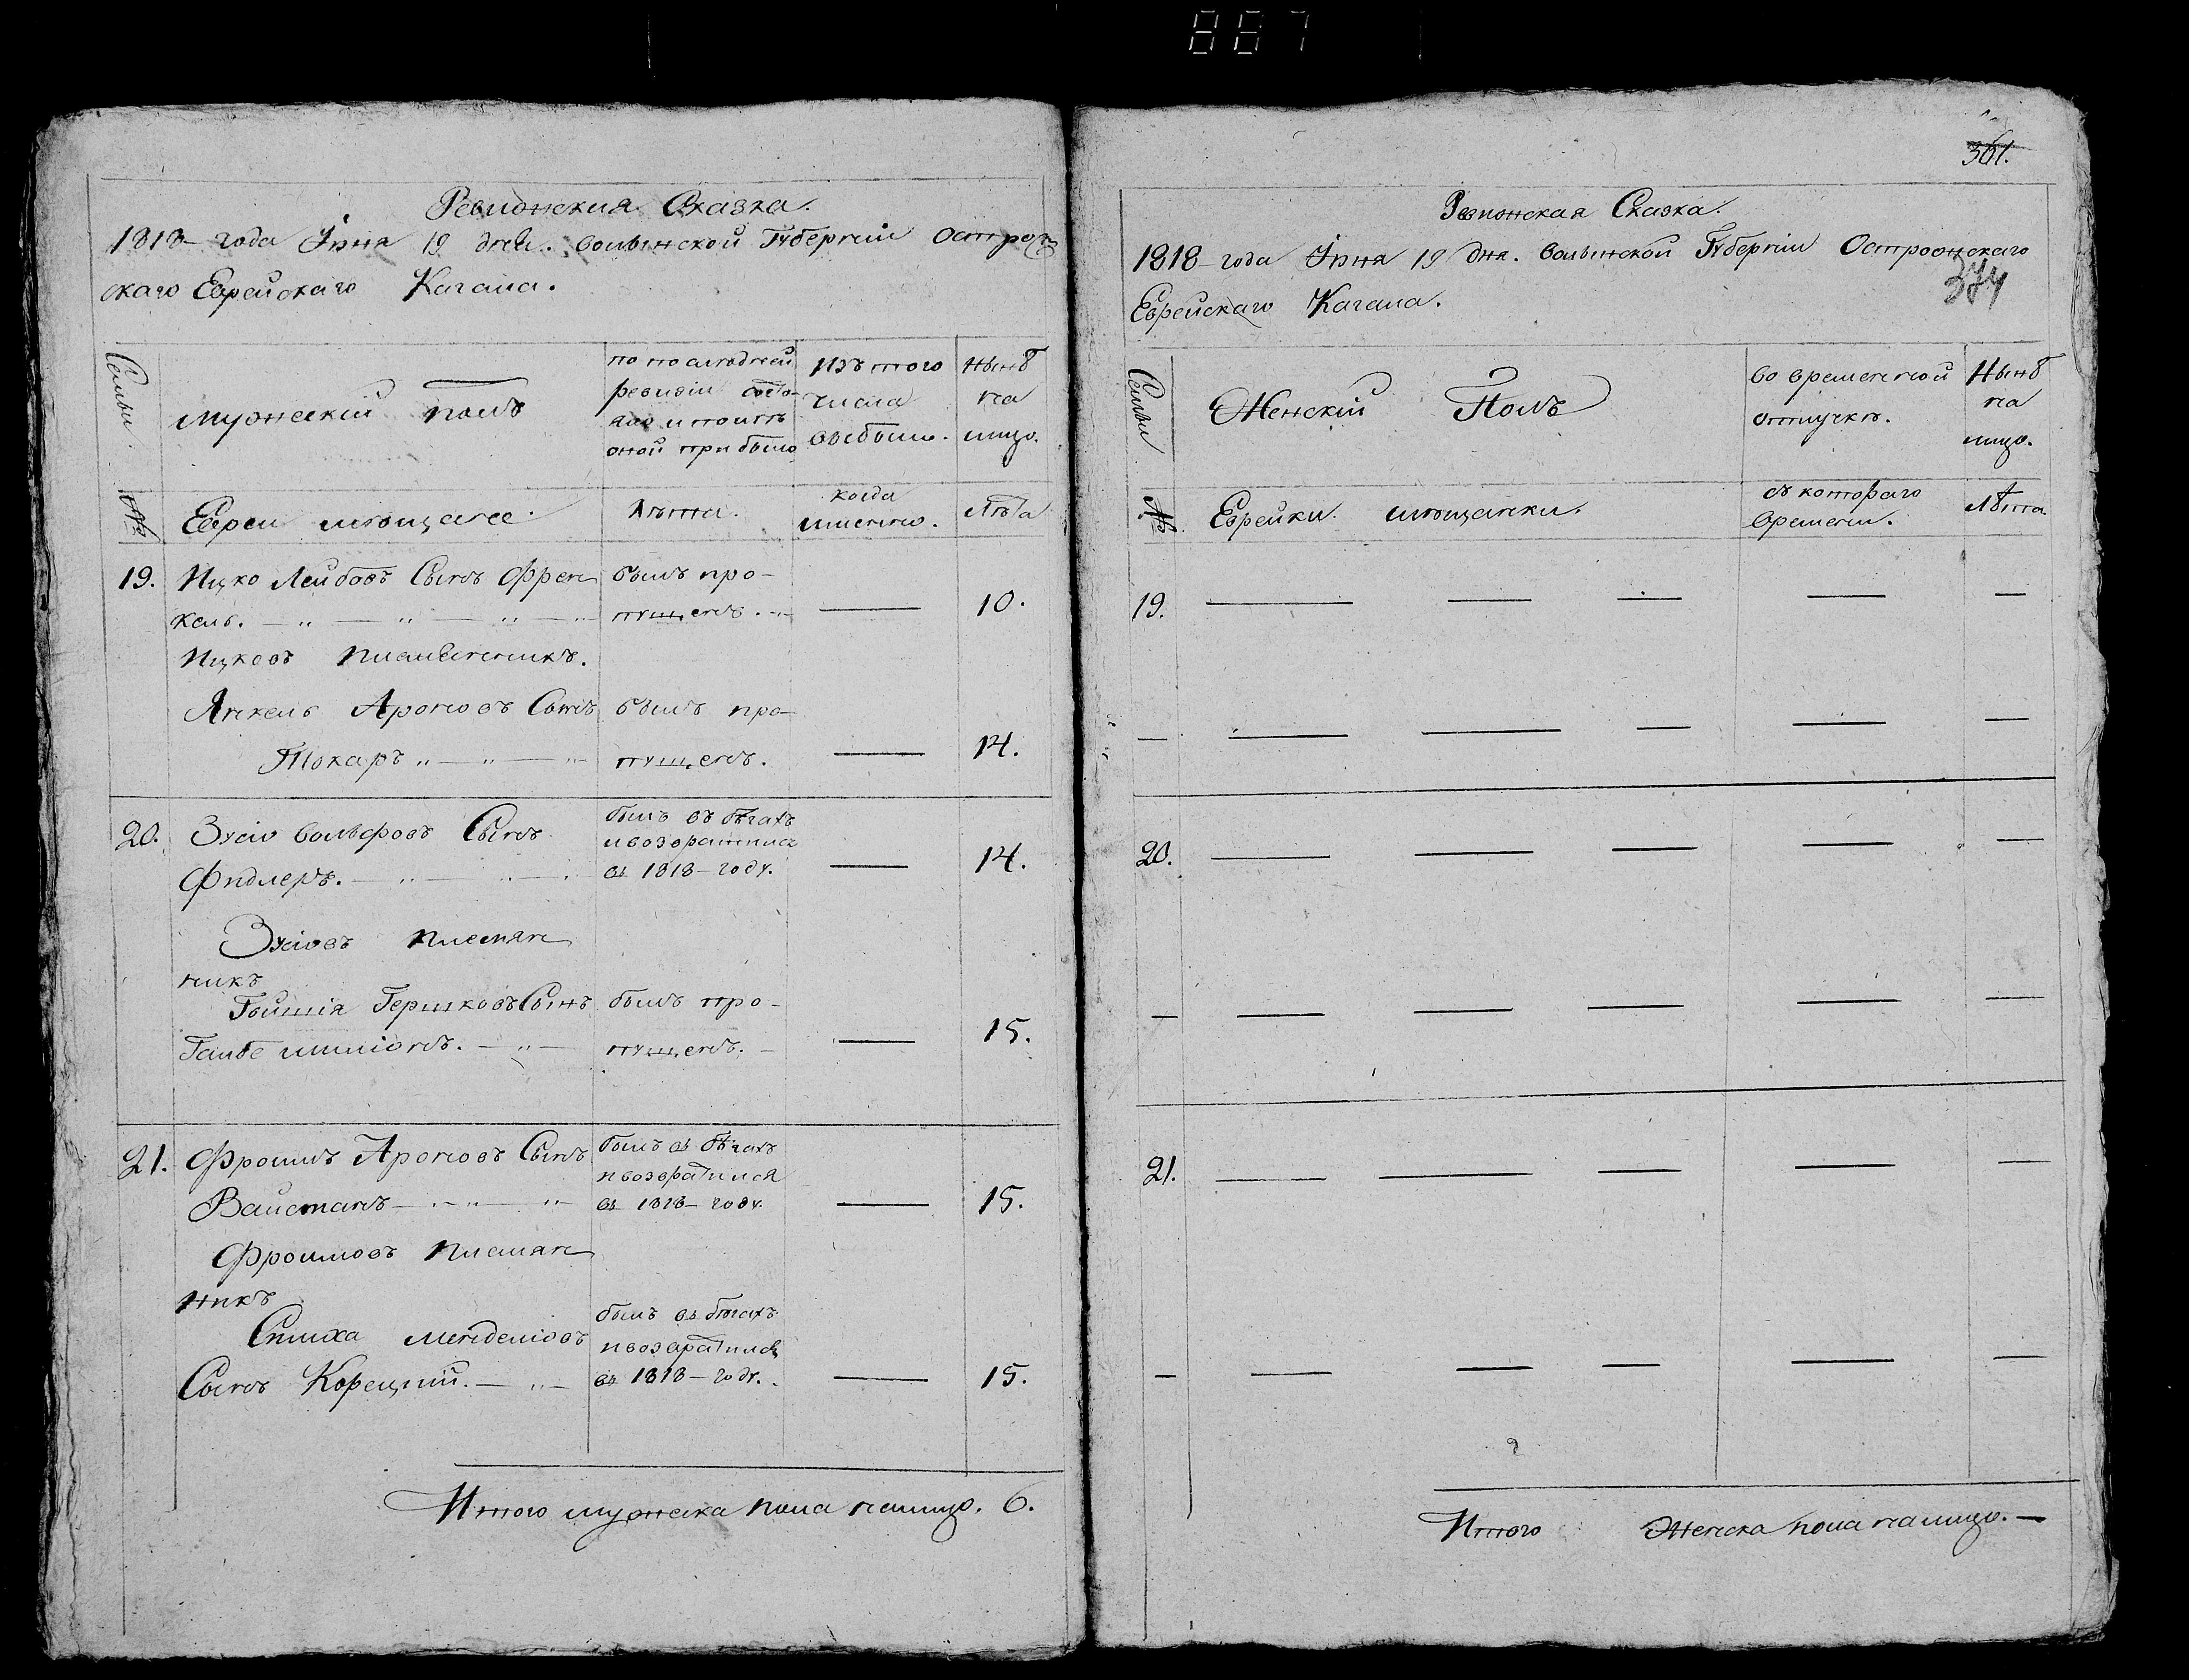 887
Ревизская Сказка.
1818 – года Іюня 19 дня. Волынской Губерніи Острож
скаго Еврейскаго Кагала.
Семьи.
Мужескій полъ
по последней
ревизіи состо-
яло и после
оной прибыло
Изъ того
числа
выбыло.
Нынѣ
на
лицо.
№
Евреи мещане.
Лѣта.
когда
именно.
Лѣта
19. Ицко Лейбовъ Сынъ Френ
кель.
былъ про-
пущенъ.
10.
Ицковъ племенникъ.
Янкель Ароновъ Сынъ
Токаръ
былъ про-
пущенъ.
14.
20. Зусіо Вольфовъ Сынъ
Фидлеръ.
былъ въ бѣгахъ
и возвратился
въ 1818 – году.
14.
Зусіовъ племян
никъ
Гершковъ Сынъ
былъ про-
пущенъ.
15.
21. Фроимъ Ароновъ Сынъ
Вайсманъ
былъ въ бѣгахъ
и возвратился
въ 1818 – году.
15.
Фроимовъ племян
никъ
Менделіовъ
Сынъ Корецкий.
былъ въ бѣгахъ
и возвратился
въ 1818 – году.
15.
Итого мужеска пола налицо. 6.
361.
Ревизская Сказка.
1818 – года Іюня 19 дня. Волынской Губерніи Острожскаго
374
Еврейскаго Кагала.
Семьи
Женскій Полъ
во временной
отлучкѣ.
Нынѣ
на
лицо.
№
Еврейки мещанки.
съ котораго
времени.
Лѣта
19.
20.
21.
Итого Женска пола налицо. —